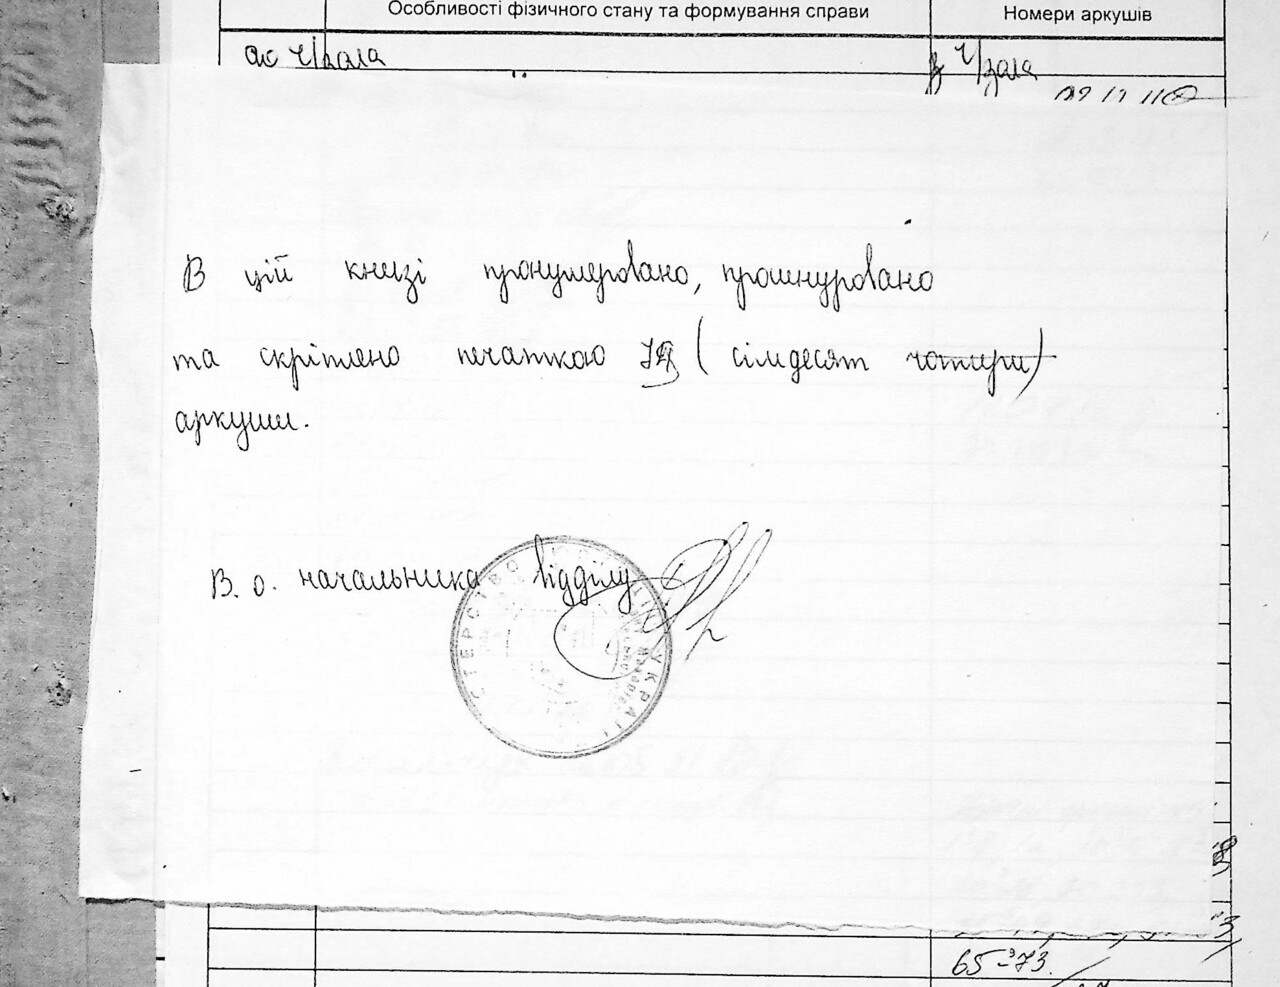 Особливості фізичного стану та формування справи
Номери аркушів
В цій книзі пронумеровано, прошнуровано
та скріплено печаткою (сімдесят чотири)
аркуши.
В. о. начальника відділу
65-73.